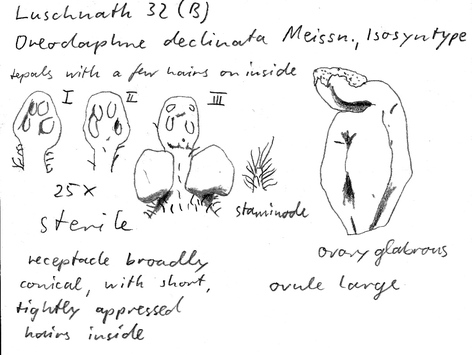 Luschnath 32 (B)
Oreodaphne declinata Meissn., Isosyntype
tepals with a few hairs on inside
I II III
25x
staminode
sterile
ovary glabrous
receptacle broadly
conical, with short,
tightly appressed
hairs inside
ovule large